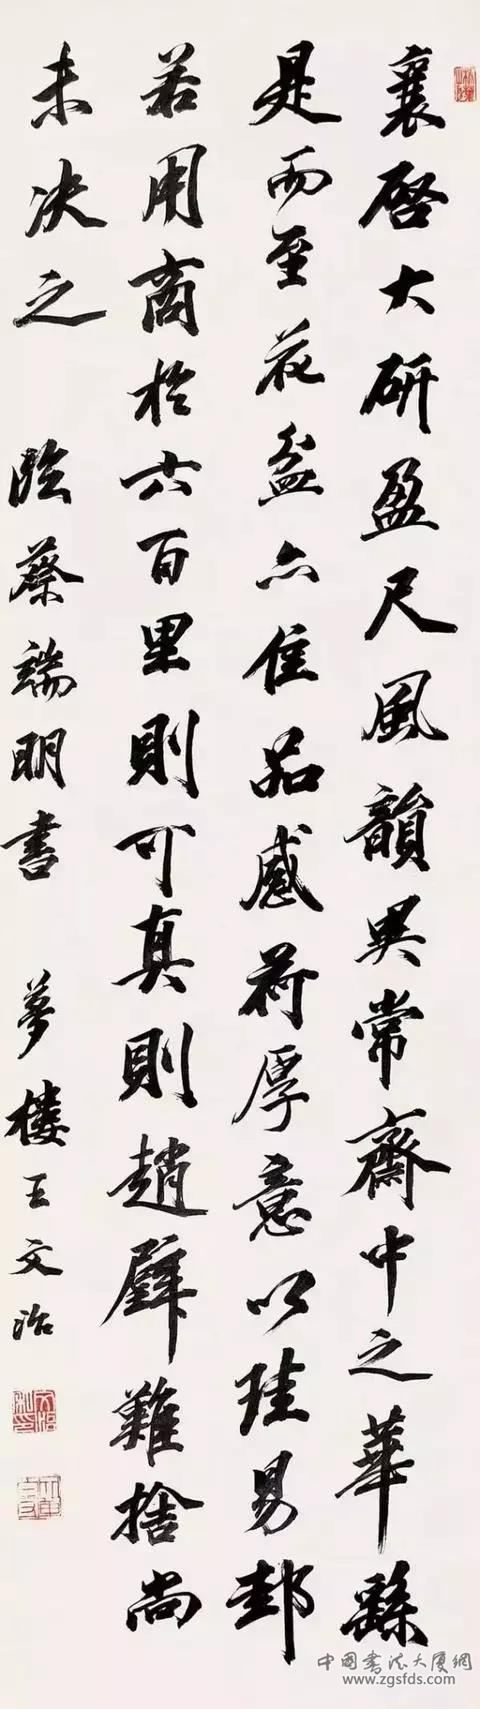 襄啓大研盈尺風韻異常齋中之華繇
是而至花盆亦佳品感荷厚意以珪易邽
若用商於六百里則可真則趙璧難捨尚
未決之 臨蔡端明書 夢樓王文治
中國書法大廈網
www.zgsfds.com